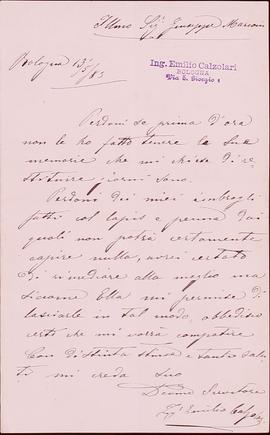 Illmo Sig. Giuseppe Marconi
Bologna 13/5/83
Ing. Emilio Calzolari
BOLOGNA
Via S. Biagio 1
Perdoni se prima d'ora
non le ho fatto tenere la Sua
memoria che mi chiese di re
stituire giorni sono.
Perdoni dei miei imbrogli
fatti col lapis e penna dai
quali non potrà certamente
capire nulla, avrei cercato
di rimediare alla meglio ma
siccome Ella mi permise di
lasciarle in tal modo, obbedisco
certo che mi vorrà compatire
Con distinta stima e tanti salu
ti mi creda Suo
Devmo Servitore
Emilio